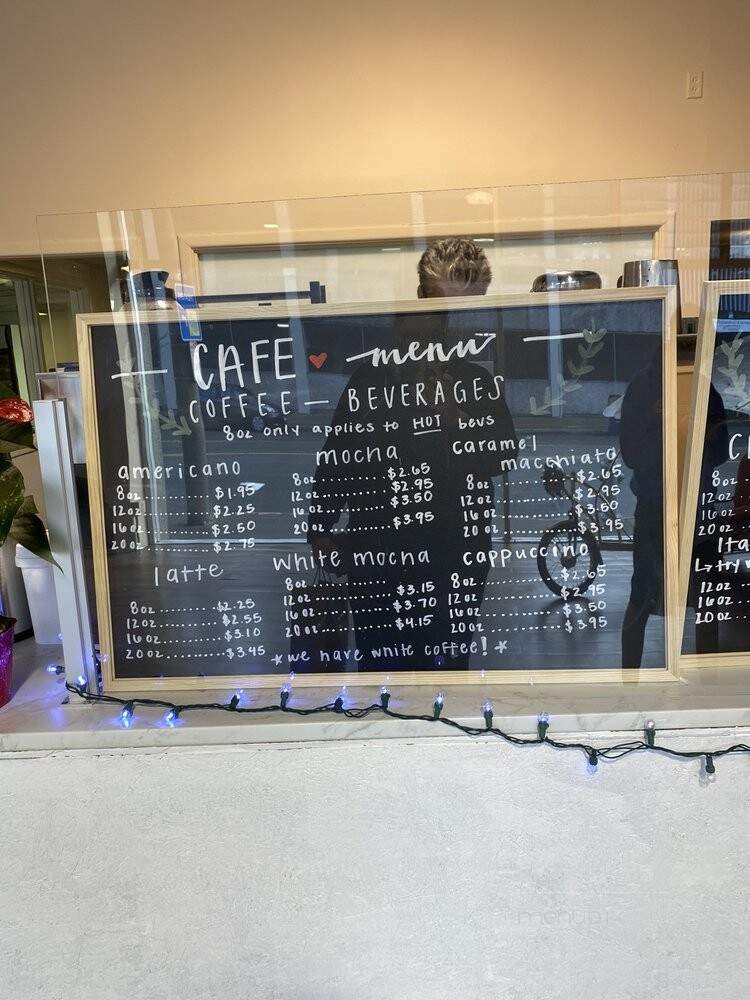 CAFE ♥ menu
COFFEE — BEVERAGES
8oz only applies to HOT bevs
americano
8oz..........$1.95
12oz..........$2.25
16oz..........$2.50
20oz..........$2.75
mocha
8oz..........$2.65
12oz..........$2.95
16oz..........$3.50
20oz..........$3.95
caramel
macchiato
8oz..........$2.65
12oz..........$2.95
16oz..........$3.50
20oz..........$3.95
latte
8oz..........$2.25
12oz..........$2.55
16oz..........$3.10
20oz..........$3.45
white mocha
8oz..........
12oz..........$3.15
16oz..........$3.70
20oz..........$4.15
cappuccino
8oz..........$2.65
12oz..........$2.95
16oz..........$3.50
20oz..........$3.95
*we have white coffee!*
C
8oz
12oz
16oz
20oz
Ita
↳try
12oz
16oz
20oz